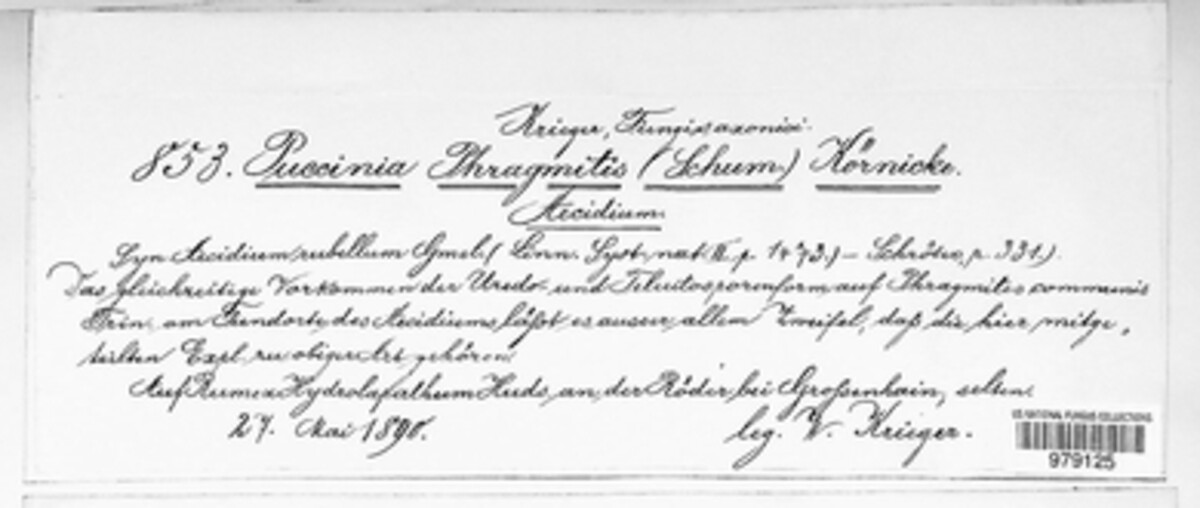 Krieger, Fungi saxonici.
853. Puccinia Phragmitis (Schum.) Körnicke.
Aecidium.
Syn. Aecidium rubellum Gmel. (Linn. Syst. nat. II. p. 1473.) – Schröter, p. 331.).
Das gleichzeitige Vorkommen der Uredo- und Teleutosporenform auf Phragmites communis
Trin. am Fundorte des Aecidiums läßt es ausser allem Zweifel, daß die hier mitge-
teilten Expl. zu obiger Art gehören.
Auf Rumex Hydrolapathum Huds. an der Röder bei Großenhain, selten.
27. Mai 1890. leg. W. Krieger.
US NATIONAL FUNGUS COLLECTIONS
979125